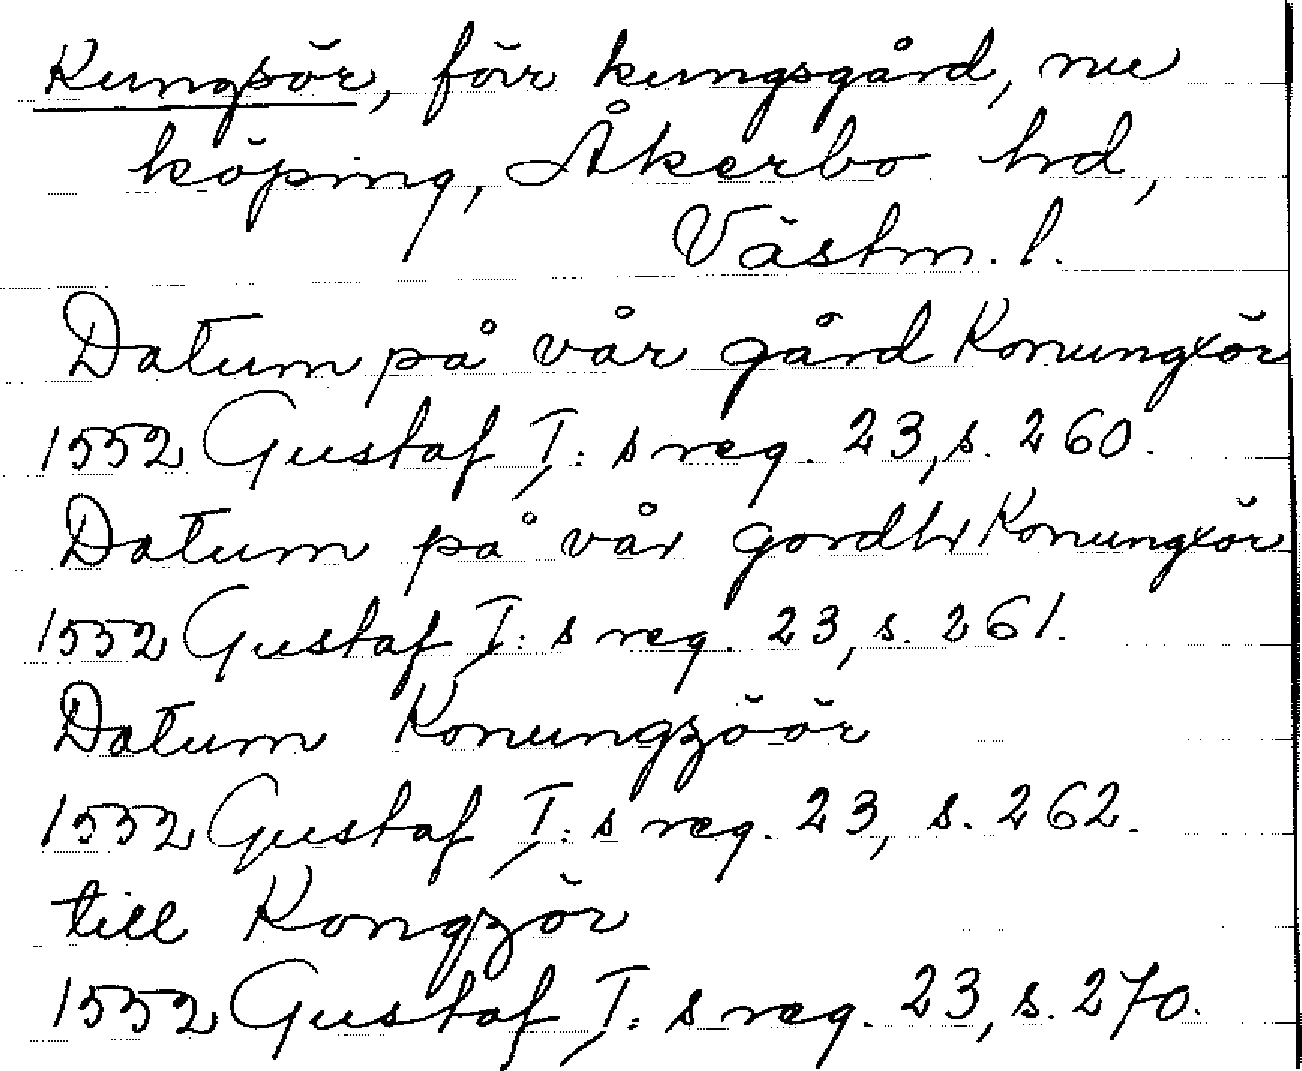 Kungsör, förr kungsgård, nu
köping, Åkerbo hd,
Västm. l.
Datum på vår gård Konungxör
1552 Gustaf I: s reg. 23, s. 260.
Datum på vår gordh Konungxör
1552 Gustaf I: s reg. 23, s. 261.
Datum Konungzöör
1552 Gustaf I: s reg. 23, s. 262.
till Kongzör
1552 Gustaf I: s reg. 23, s. 270.